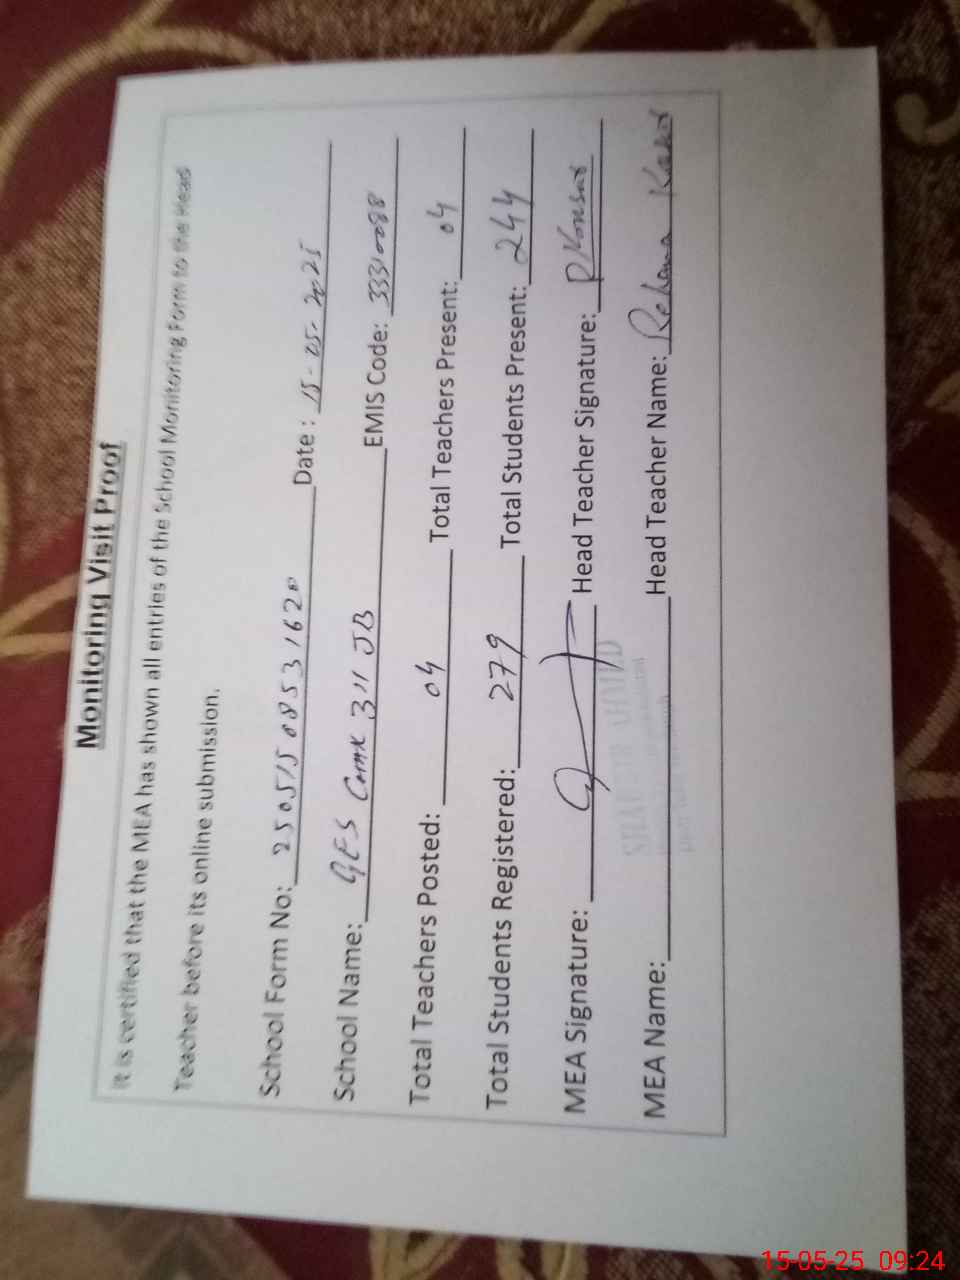 Monitoring Visit Proof
It is certified that the MEA has shown all entries of the School Monitoring Form to the Head
Teacher before its online submission.
School Form No: 25051508531620 Date : 15-05-2025
School Name: GES Comk 311 JB EMIS Code: 33310088
Total Teachers Posted: 04 Total Teachers Present: 04
Total Students Registered: 279 Total Students Present: 244
MEA Signature: Head Teacher Signature: RKousar
MEA Name: Head Teacher Name: Rehana
AHMED
15-05-25 09:24